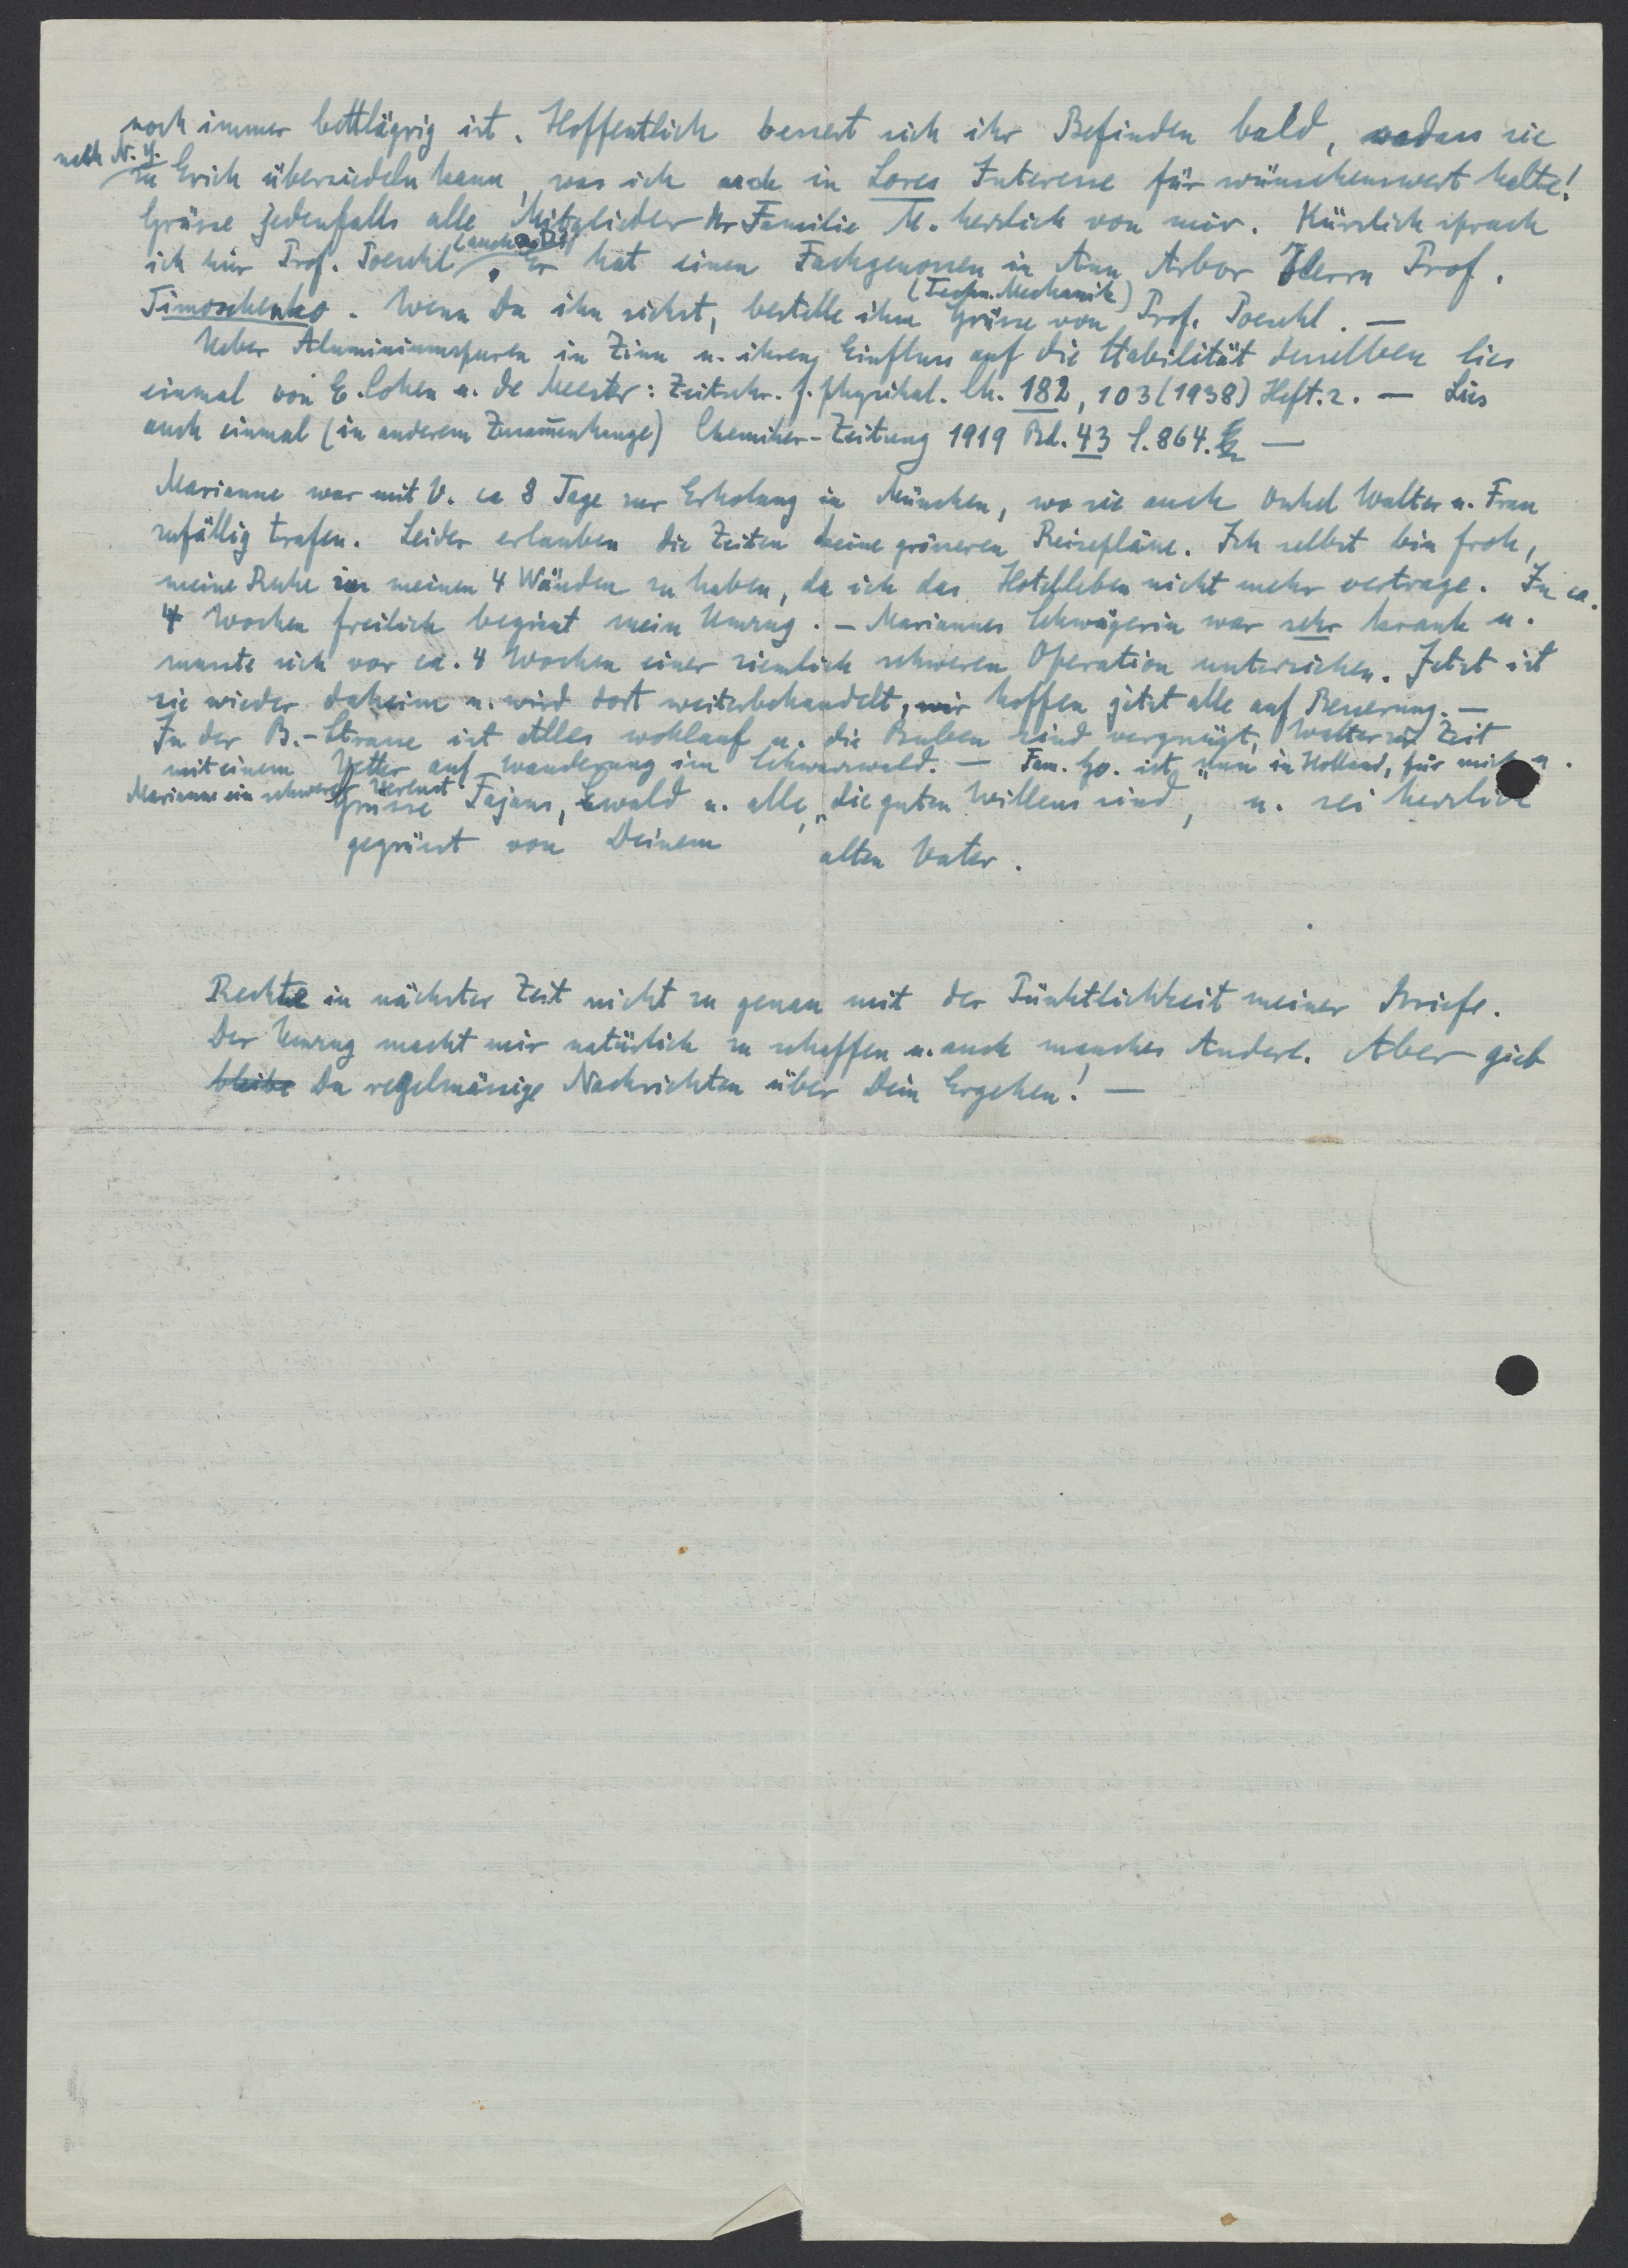 noch immer bettlägrig ist. Hoffentlich bessert sich ihr Befinden bald, sodass sie
nach N. Y.
zu Erich übersiedeln kann, was ich auch in Lores Interesse für wünschenswert halte!
Grüsse jedenfalls alle Mitglieder der Familie M. herzlich von mir. Kürzlich sprach
ich hier Prof. Poeschl. Er hat einen Fachgenossen in Ann Arbor Herrn Prof.
(Techn. Mechanik)
Timoschenko. Wenn Du ihn siehst, bestelle ihm Grüsse von Prof. Poeschl. —
Ueber Aluminiumspuren in Zinn u. ihren Einfluss auf die Stabilität desselben lies
einmal von E. Cohen u. de Meester: Zeitschr. f. physikal. Ch. 182, 103 (1938) Heft. 2. — Lies
auch einmal (in anderem Zusam̅enhange) Chemiker-Zeitung 1919 Bd. 43 S. 864. —
Marianne war mit V. ca 8 Tage zur Erholung in München, wo sie auch Onkel Walter u. Frau
zufällig trafen. Leider erlauben die Zeiten keine grösseren Reisepläne. Ich selbst bin froh,
meine Ruhe in meinen 4 Wänden zu haben, da ich das Hotelleben nicht mehr vertrage. In ca.
4 Wochen freilich beginnt mein Umzug. — Mariannes Schwägerin war sehr krank u.
musste sich vor ca. 4 Wochen einer ziemlich schweren Operation unterziehen. Jetzt ist
sie wieder daheim u. wird dort weiterbehandelt, wir hoffen jetzt alle auf Besserung. —
In der B.-Strasse ist Alles wohlauf u. die Buben sind vergnügt, Walter zur Zeit
mit einem Vetter auf Wanderung im Schwarzwald. — Fam. Go. ist nun in Holland, für mich u.
Marianne ein schwerer Verlust
Grüsse Fajans, Ewald u. alle, „die guten Willens sind, u. sei herzlich
gegrüsst von Deinem alten Vater.
Rechte in nächster Zeit nicht zu genau mit der Pünktlichkeit meiner Briefe.
Der Umzug macht mir natürlich zu schaffen u. auch manches Andere. Aber gieb
bleibe Du regelmässige Nachrichten über Dein Ergehen! —